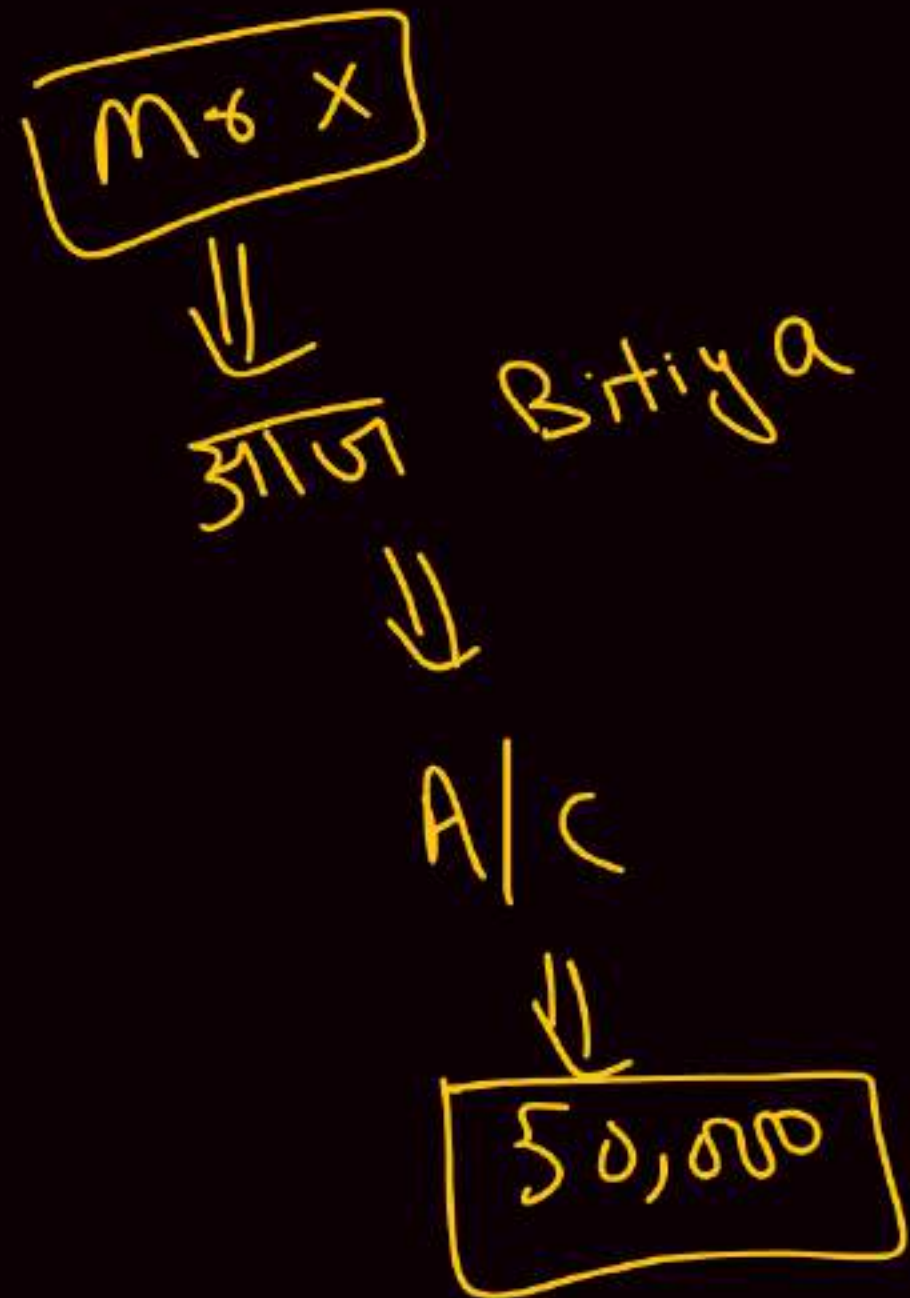 Mr X
आज Bitiya
A/C
50,000